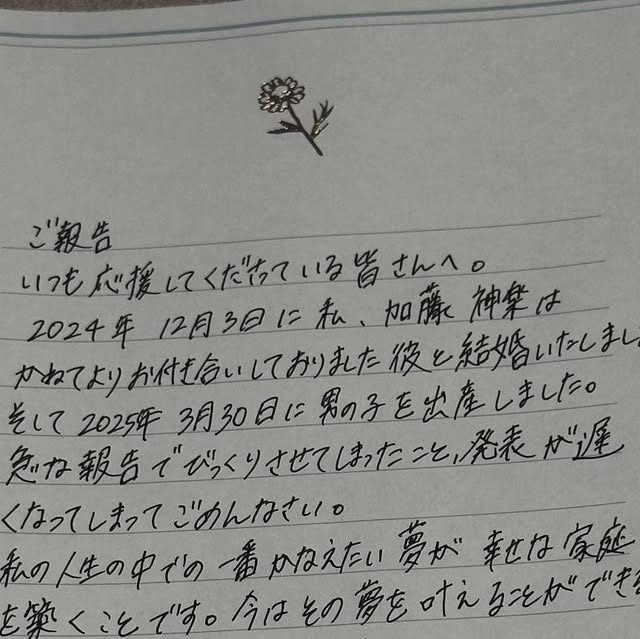 ご報告
いつも応援してくださっている皆さんへ。
2024年 12月3日に 私、加藤 神楽は
かねてよりお付き合いしておりました彼と結婚いたしまし
そして 2025年 3月30日に 男の子を出産しました。
急な報告でびっくりさせてしまったこと、発表が遅
くなってしまってごめんなさい。
私の人生の中での一番かなえたい夢が 幸せな家庭
を築くことです。今はその夢を叶えることができ